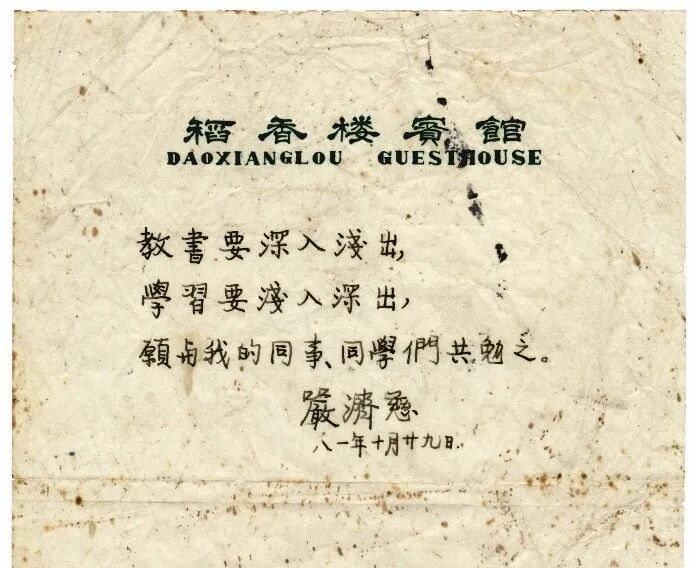 稻香楼賓館
DAOXIANGLOU GUESTHOUSE
教書要深入淺出,
學習要淺入深出,
願与我的同事、同學們共勉之。
嚴濟慈
八一年十月廿九日.